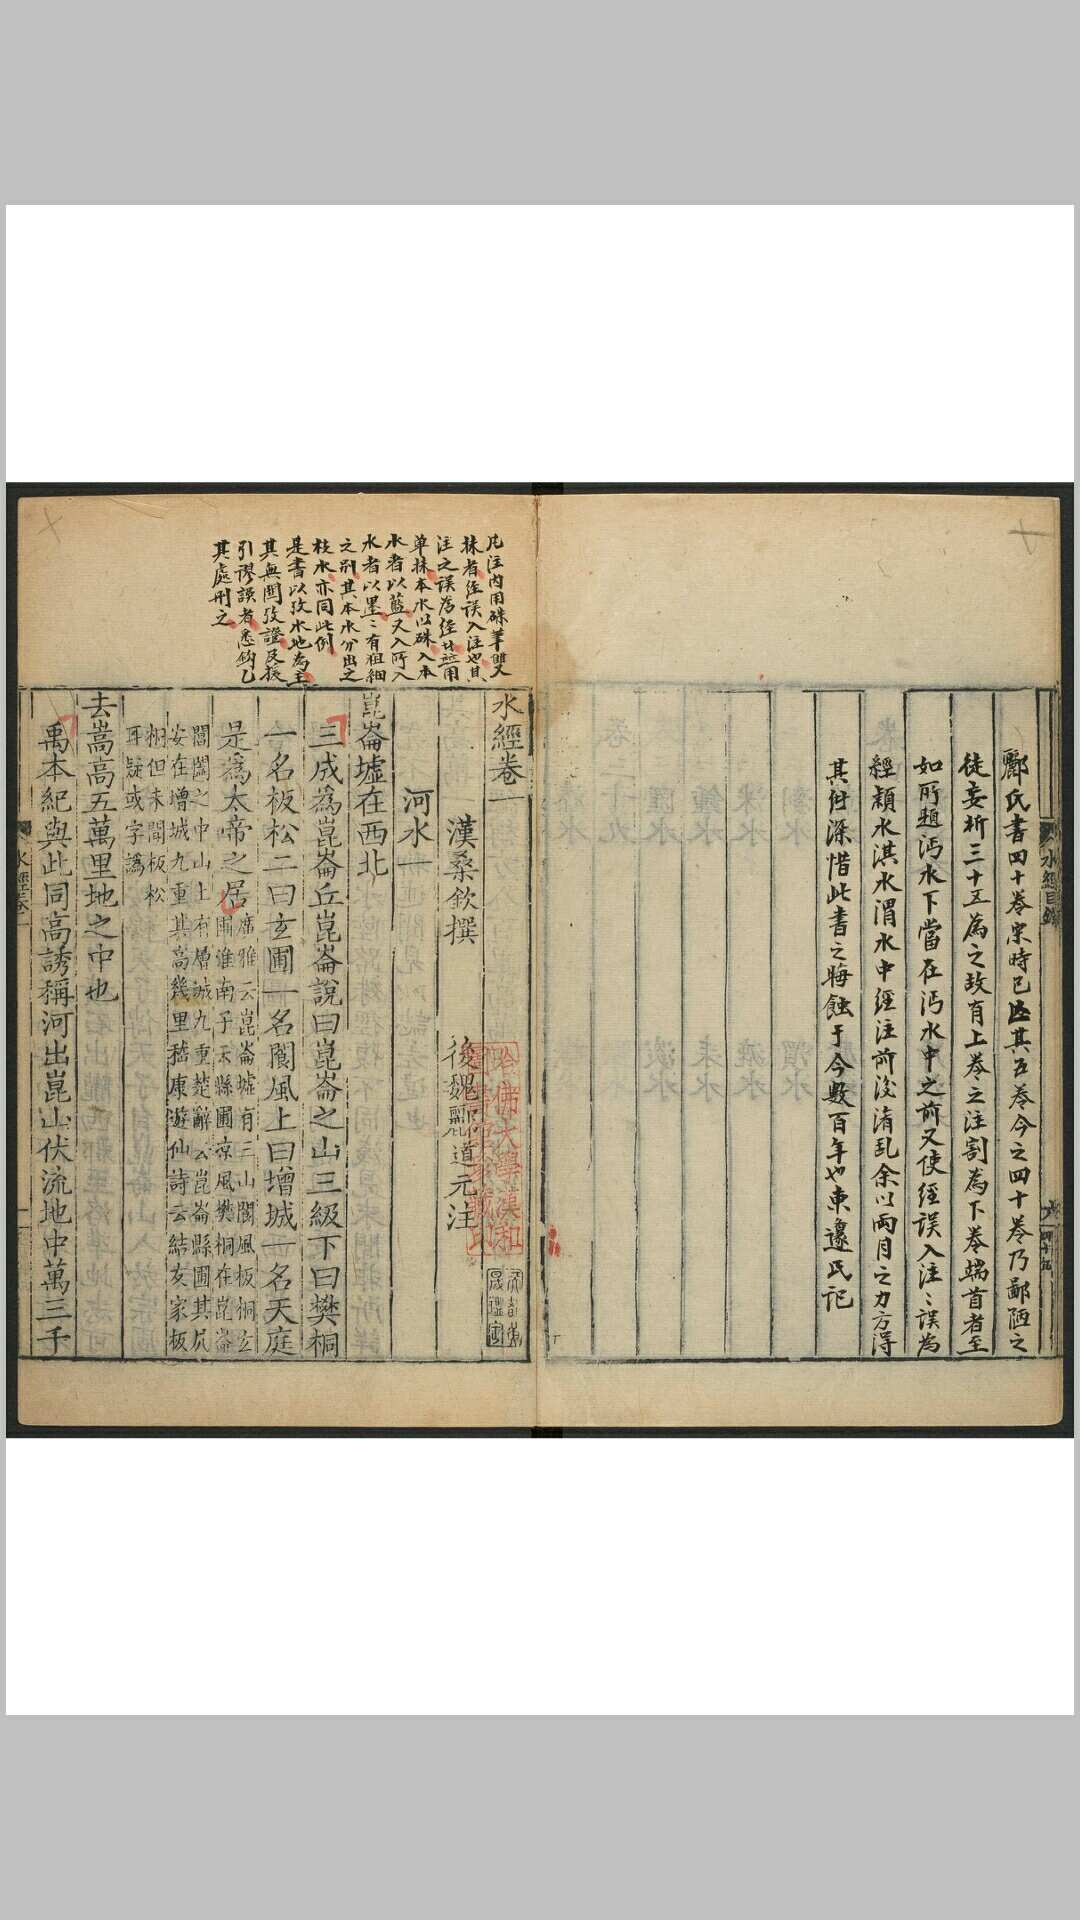 酈氏書四十卷宋時已亾其五卷今之四十卷乃鄙陋之
徒妄析三十五為之故有上卷之注割為下卷端首者至
如所題沔水下當在沔水中之前又使經誤入注〻誤為
經潁水淇水渭水中經注前後淆乱余以兩月之力方得
其付深惜此書之晦蝕于今數百年也東邍氏記
水經目錄
凡注內用硃筆雙
抹者經誤入注也其
注之誤為經
單抹本水以硃入本
水者以藍又入所入
水者以墨〻有粗細
之别其本水分出之
枝水亦同此例
是書以攷水地為主
其無關攷證及援
引謬誤者悉鈎乙
其處刑之
水經卷一
漢桑欽撰 後魏酈道元注
哈佛大學漢和圖書館珍藏印
河水一
崑崙墟在西北
三成爲崑崙丘崑崙說曰崑崙之山三級下曰樊桐
一名板松二曰玄圃一名閬風上曰增城一名天庭
是爲太帝之居
廣雅云崑崙墟有三山閬風板桐玄
圃淮南子云縣圃凉風樊桐在崑崙
閶闔之中山上有層城九重楚辭云崑崙縣圃其尻
安在增城九重其高幾里嵇康遊仙詩云結友家板
桐但未聞板松
耳疑或字譌
去嵩高五萬里地之中也
禹本紀與此同高誘稱河出崑山伏流地中萬三千
水經卷一